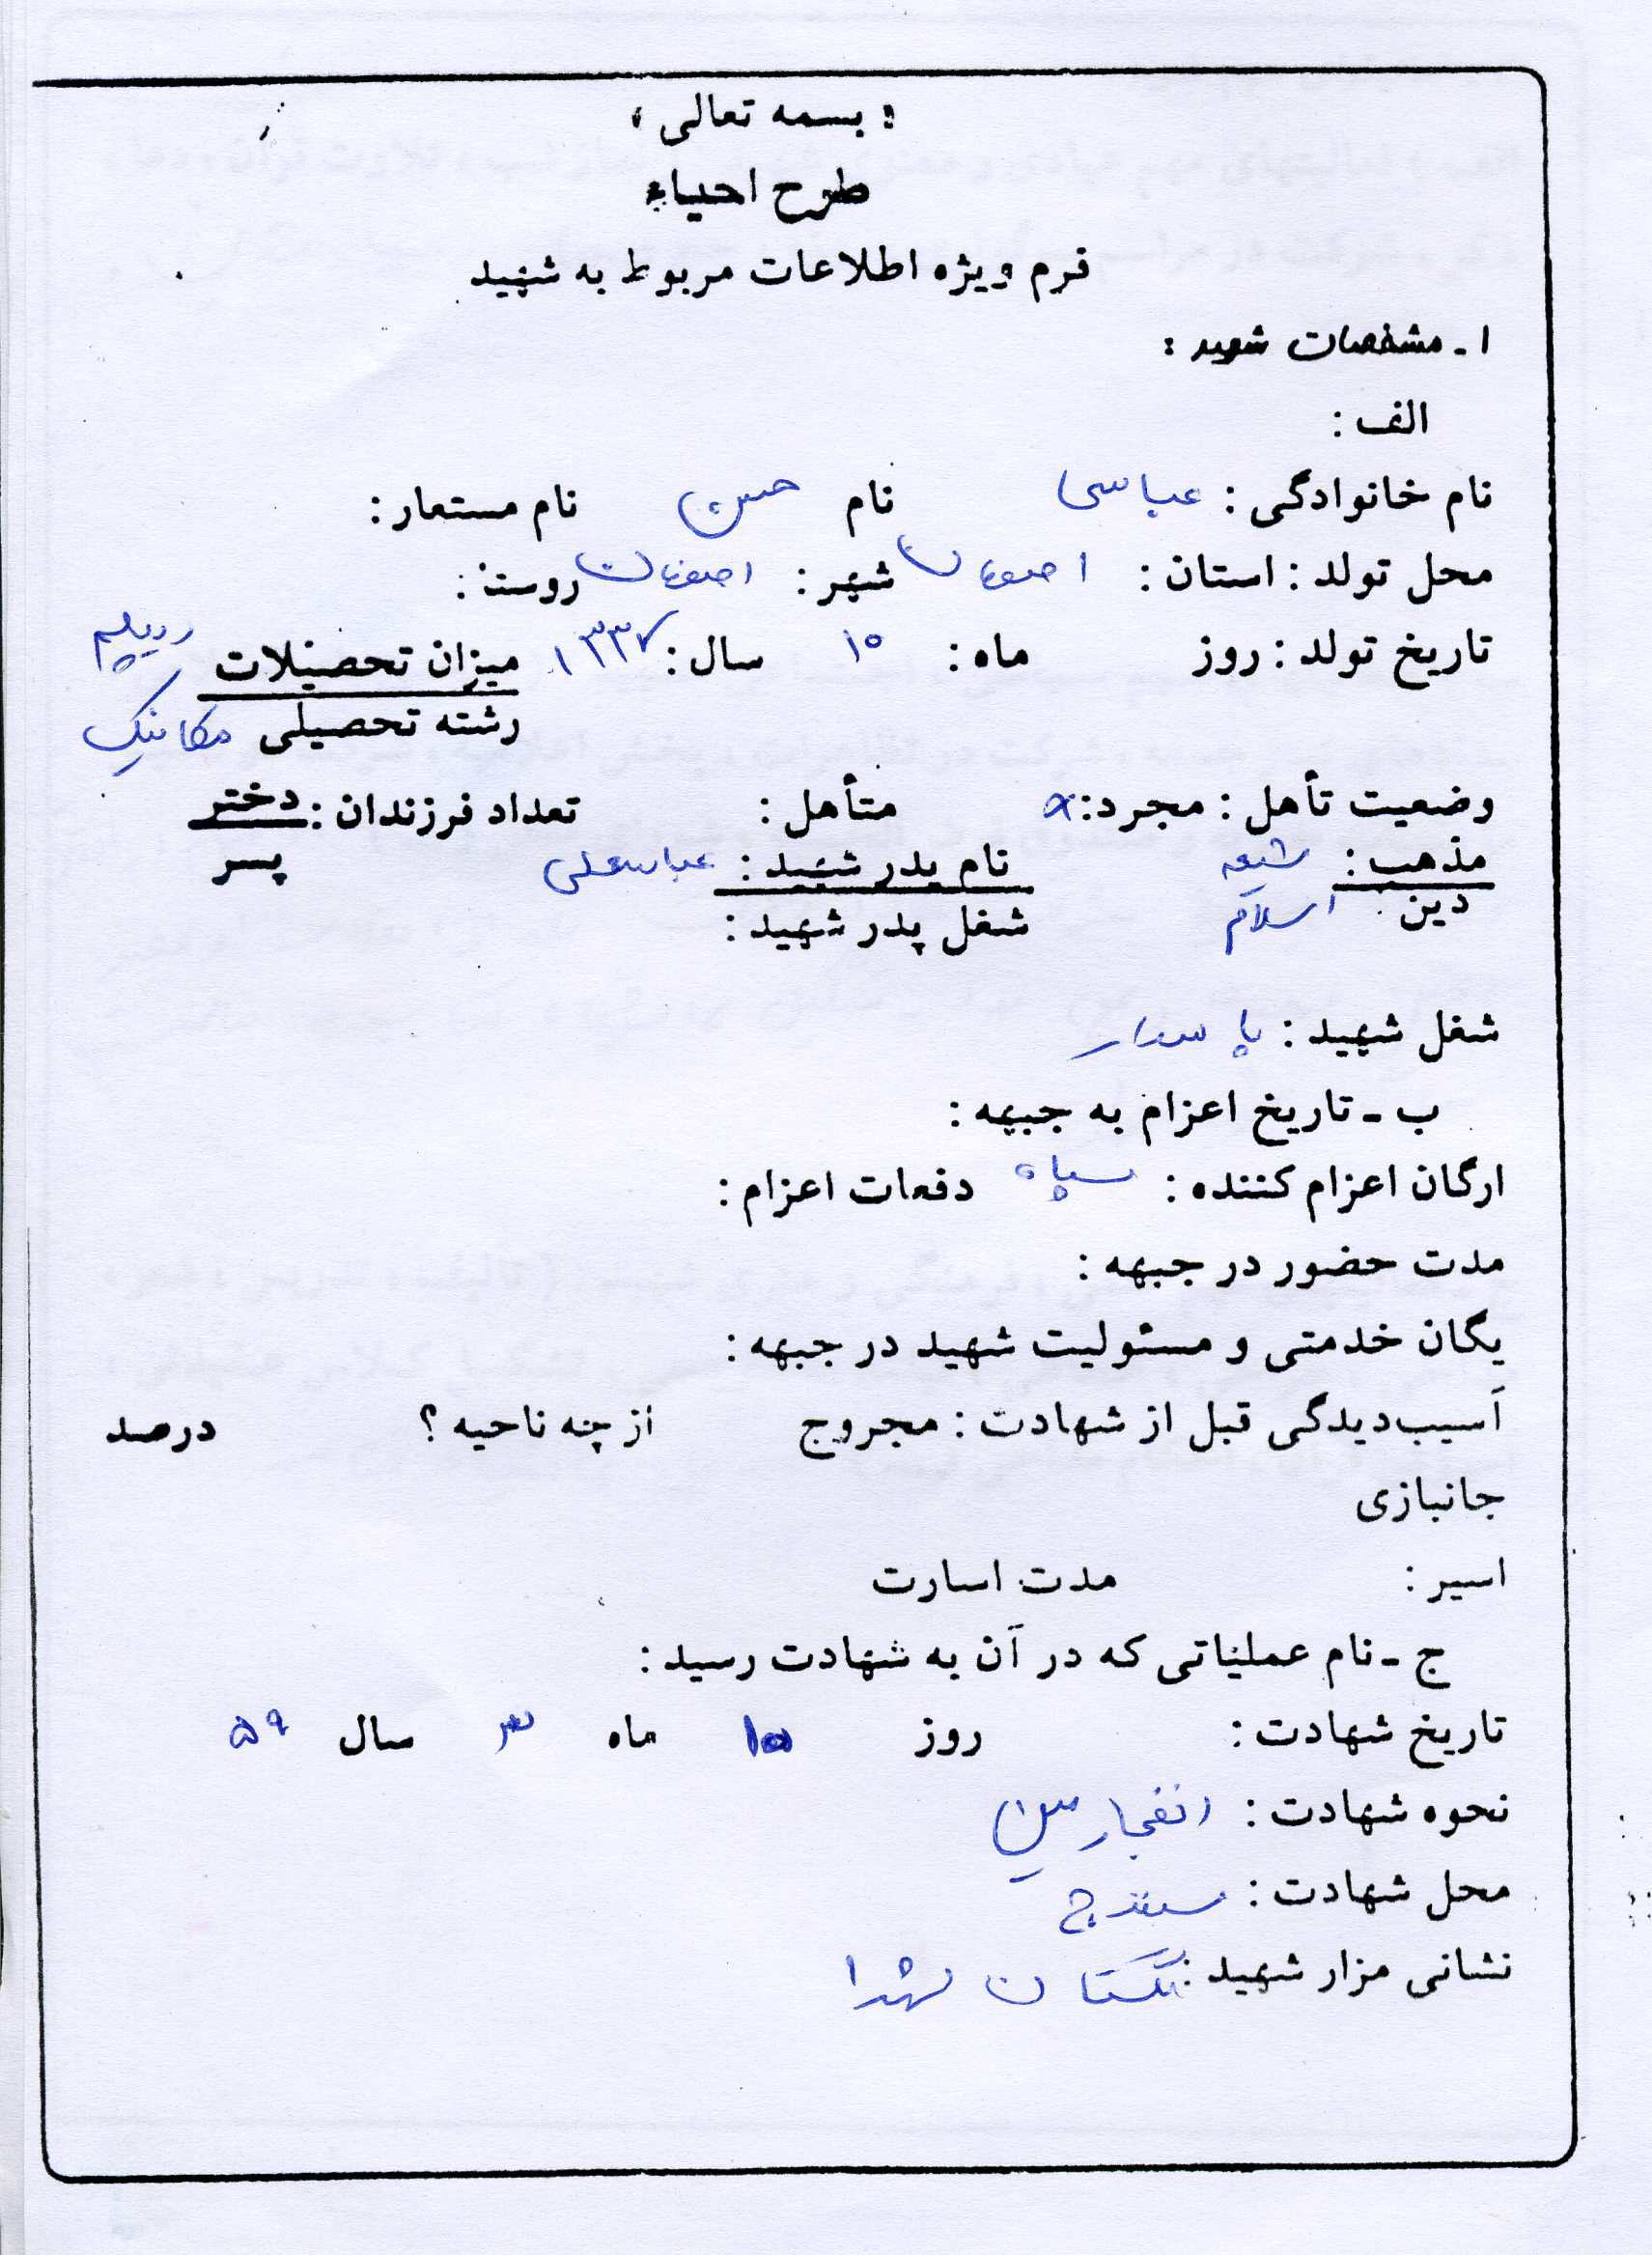 «بسمه تعالی»
طرح احیاء
فرم ویژه اطلاعات مربوط به شهید
۱ - مشخصات شهید :
الف :
نام خانوادگی : عباسی نام حسن نام مستعار :
محل تولد : استان : اصفهان شهر : اصفهان روستا :
تاریخ تولد : روز ماه : ۱۰ سال : ۱۳۳۷ میزان تحصیلات دیپلم
رشته تحصیلی مکانیک
وضعیت تأهل : مجرد : × متأهل : تعداد فرزندان : دختر
پسر
مذهب : شیعه نام پدر شهید : عباسعلی
دین اسلام شغل پدر شهید :
شغل شهید : پاسدار
ب - تاریخ اعزام به جبهه :
ارگان اعزام کننده : سپاه دفعات اعزام :
مدت حضور در جبهه :
یگان خدمتی و مسئولیت شهید در جبهه :
آسیب‌دیدگی قبل از شهادت : مجروح از چه ناحیه ؟ درصد
جانبازی
اسیر : مدت اسارت
ج - نام عملیاتی که در آن به شهادت رسید :
تاریخ شهادت : روز ماه ۳ سال ۵۹
نحوه شهادت : انفجار مین
محل شهادت : سنندج
نشانی مزار شهید : گلستان شهدا